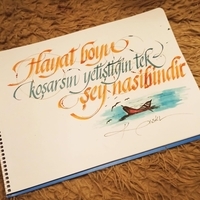 Hayat boyu
koşarsın yetiştiğin tek
şey nasibindir